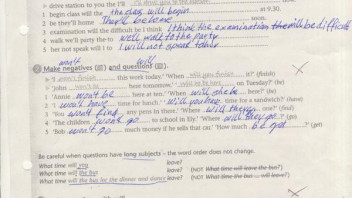 1 begin class will the the class will begin at 9.30.
2 be they'll home They'll be home soon.
3 examination will the difficult be I think I think the examination will be difficult
4 walk we'll party the to we'll walk to the party
5 her not speak will I to I will not speak today
2 Make negatives and questions
won't will
'I won't finish this work today.' 'When will you finish it?' (finish)
1 'John won't be here tomorrow.' will he be here on Tuesday?' (be)
2 'Annie won't be here at ten.' 'When will she be here?' (be)
3 'I won't have time for lunch.' 'Will you have time for a sandwich?' (have)
4 'You won't find any pens in there.' 'Where will they (find)
5 'The children won't go to school in Ely.' 'Where will they go?' (go)
6 'Bob won't go much money if he sells that car.' 'How much be get ?' (get)
Be careful when questions have long subjects – the word order does not change.
What time will you leave?
What time will the bus leave? (NOT What time will leave the bus?)
What time will the bus for the dinner and dance leave? (NOT What time the bus will leave?)